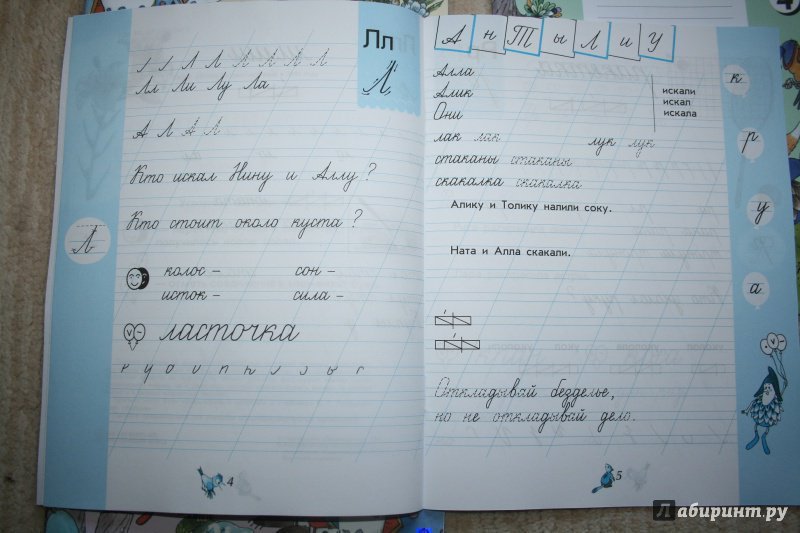 Лл
Л
Л Л Л Л Л Л
Лл Ли Лу Ла
А Л А Л
Кто искал Нину и Аллу?
Кто стоит около куста?
Л
колос – сон –
исток – сила –
ласточка
4
А н Т ы Л и У
Алла
Алик
Они
искали
искал
искала
лак лак лук лук
стаканы стаканы
скакалка скакалка
Алику и Толику налили соку.
Ната и Алла скакали.
Откладывай безделье,
но не откладывай дело.
к
р
у
а
5
Лабиринт.ру